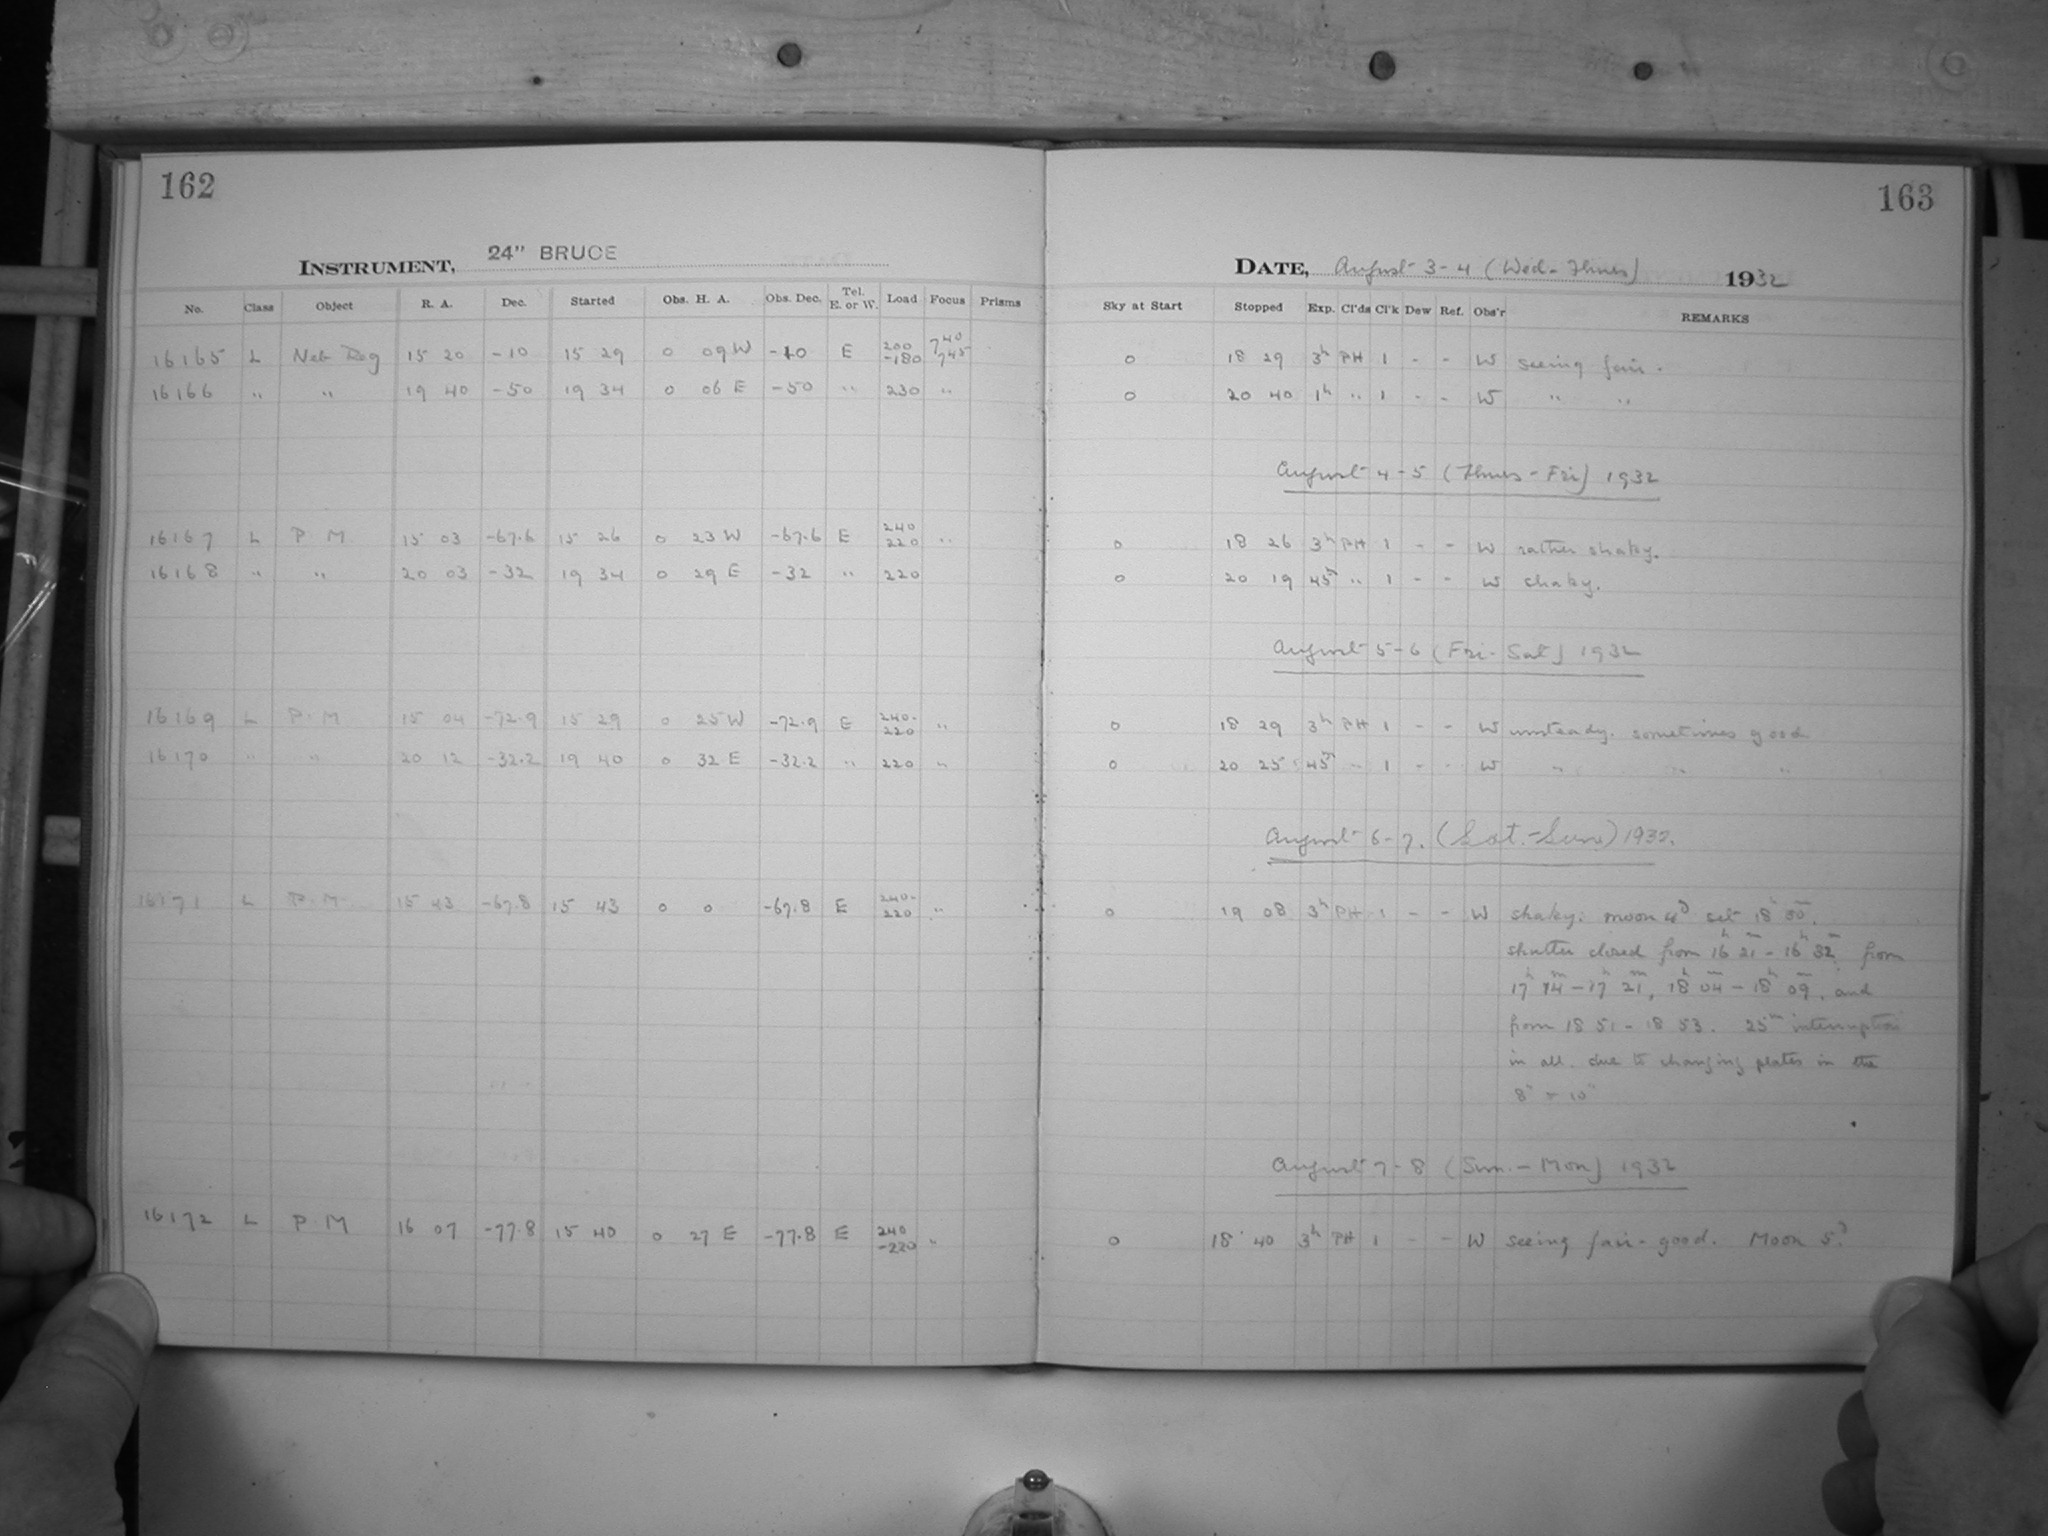 162
INSTRUMENT, 24" BRUCE
No. Class Object R. A. Dec. Started Obs. H. A. Obs. Dec. Tel. E. or W. Load Focus Prisms
16165 L Neb Reg 15 20 -10 15 29 0 09 W -10 E 200 -180 740 745
16166 " " 19 40 -50 19 34 0 06 E -50 " 230 "
16167 L P. M. 15 03 -67.6 15 26 0 23 W -67.6 E 240 220 "
16168 " " 20 03 -32 19 34 0 29 E -32 " 220
16169 L P. M 15 04 -72.9 15 29 0 25 W -72.9 E 240- 220 "
16170 " " 20 12 -32.2 19 40 0 32 E -32.2 " 220 "
16171 L P. M. 15 43 -67.8 15 43 0 0 -67.8 E 240- 220 "
16172 L P. M 16 07 -77.8 15 40 0 27 E -77.8 E 240 -220 "
163
DATE, August 3-4 (Wed-Thurs) 1932
Sky at Start Stopped Exp. Cl'ds Cl'k Dew Ref. Obs'r REMARKS
0 18 29 3h PH 1 - - W seeing fair.
0 20 40 1h " 1 - - W " "
August 4-5 (Thurs-Fri) 1932
0 18 26 3h PH 1 - - W rather shaky.
0 20 19 45m " 1 - - W shaky.
August 5-6 (Fri-Sat) 1932
0 18 29 3h PH 1 - - W unsteady. sometimes good
0 20 25 45m " 1 - - W " " "
August 6-7. (Sat.-Sun) 1932.
0 19 08 3h PH 1 - - W shaky. moon 4d set 18h 00m.
shutter closed from 16h 21m - 16h 32m from
17h 14m - 17h 21m, 18h 04m - 18h 09m, and
from 18 51 - 18 53. 25m interruption
in all. due to changing plates in the
8" + 10"
August 7-8 (Sun.-Mon) 1932
0 18 40 3h PH 1 - - W seeing fair-good. Moon 5d